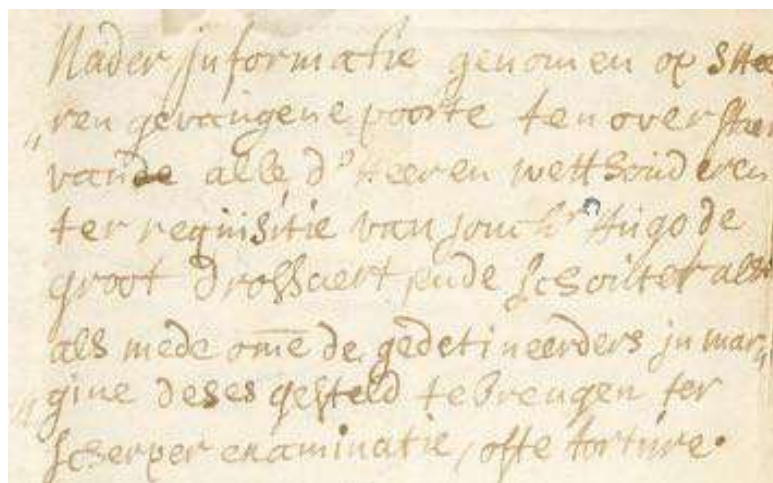 Nader informatie genomen op SHee
„ren gevangene poorte ten over sten
van alle d'Heeren wetthouderen
ter requisitie van jonchr Hugo de
groot drossaert ende schoutet
als mede ome de gedetineerders in mar„
gine deses gesteld te brengen ter
scherper examinatie, ofte torture.